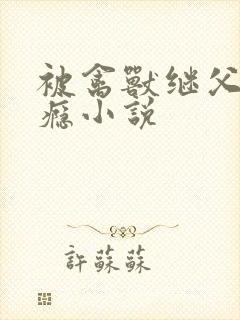 被禽獸继父
癮小説
許蘇蘇